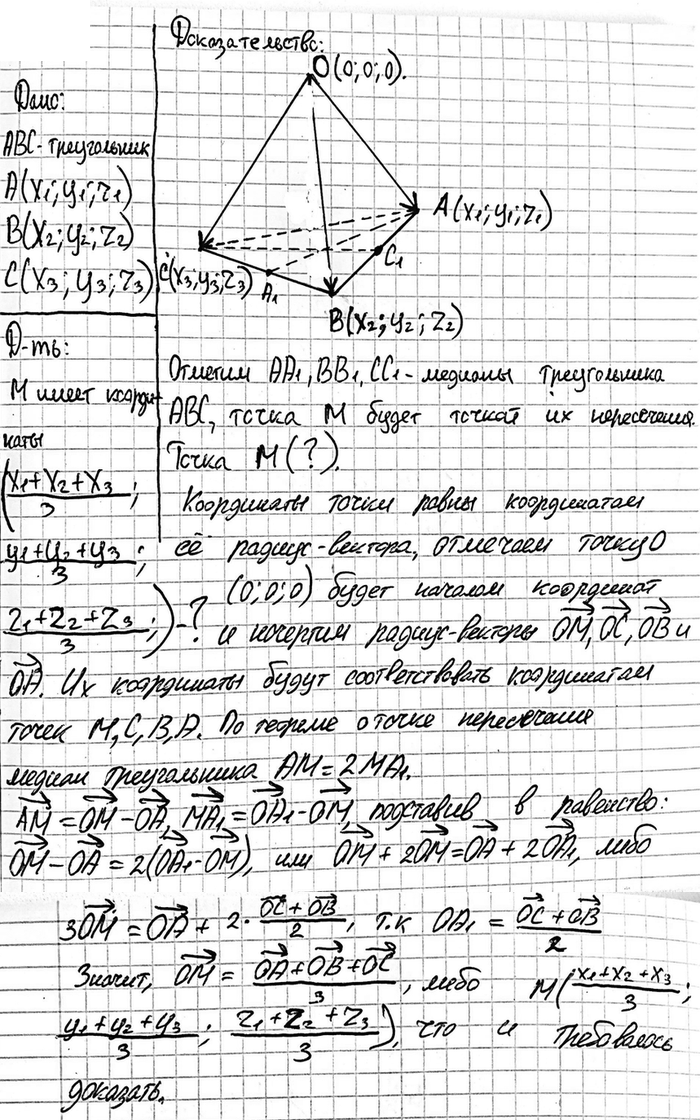 Доказательство:
O(0;0;0).
A(x₁;y₁;z₁)
C₁
C(x₃;y₃;z₃)
A₁
B(x₂;y₂;z₂)
Дано:
ABC-треугольник
A(x₁;y₁;z₁)
B(x₂;y₂;z₂)
C(x₃;y₃;z₃)
Д-ть:
M имеет коорди-
наты
(x₁+x₂+x₃/3;
y₁+y₂+y₃/3;
z₁+z₂+z₃/3;)-?
Отметим AA₁, BB₁, CC₁-медианы треугольника
ABC, точка M будет точкой их пересечения.
Точка M(?).
Координаты точки равны координатам
её радиус-вектора, отмечаем точку O
(0;0;0) будет началом координат
и начертим радиус-векторы OM, OC, OB и
OA. Их координаты будут соответствовать координатам
точек M, C, B, A. По теореме о точке пересечения
медиан треугольника AM=2MA₁.
AM=OM-OA, MA₁=OA₁-OM, подставив в равенство:
OM-OA=2(OA₁-OM), или OM+2OM=OA+2OA₁, либо
3OM=OA+2·OC+OB/2, т.к OA₁=OC+OB/2
Значит, OM=OA+OB+OC/3, либо M(x₁+x₂+x₃/3;
y₁+y₂+y₃/3; z₁+z₂+z₃/3), что и требовалось
доказать.